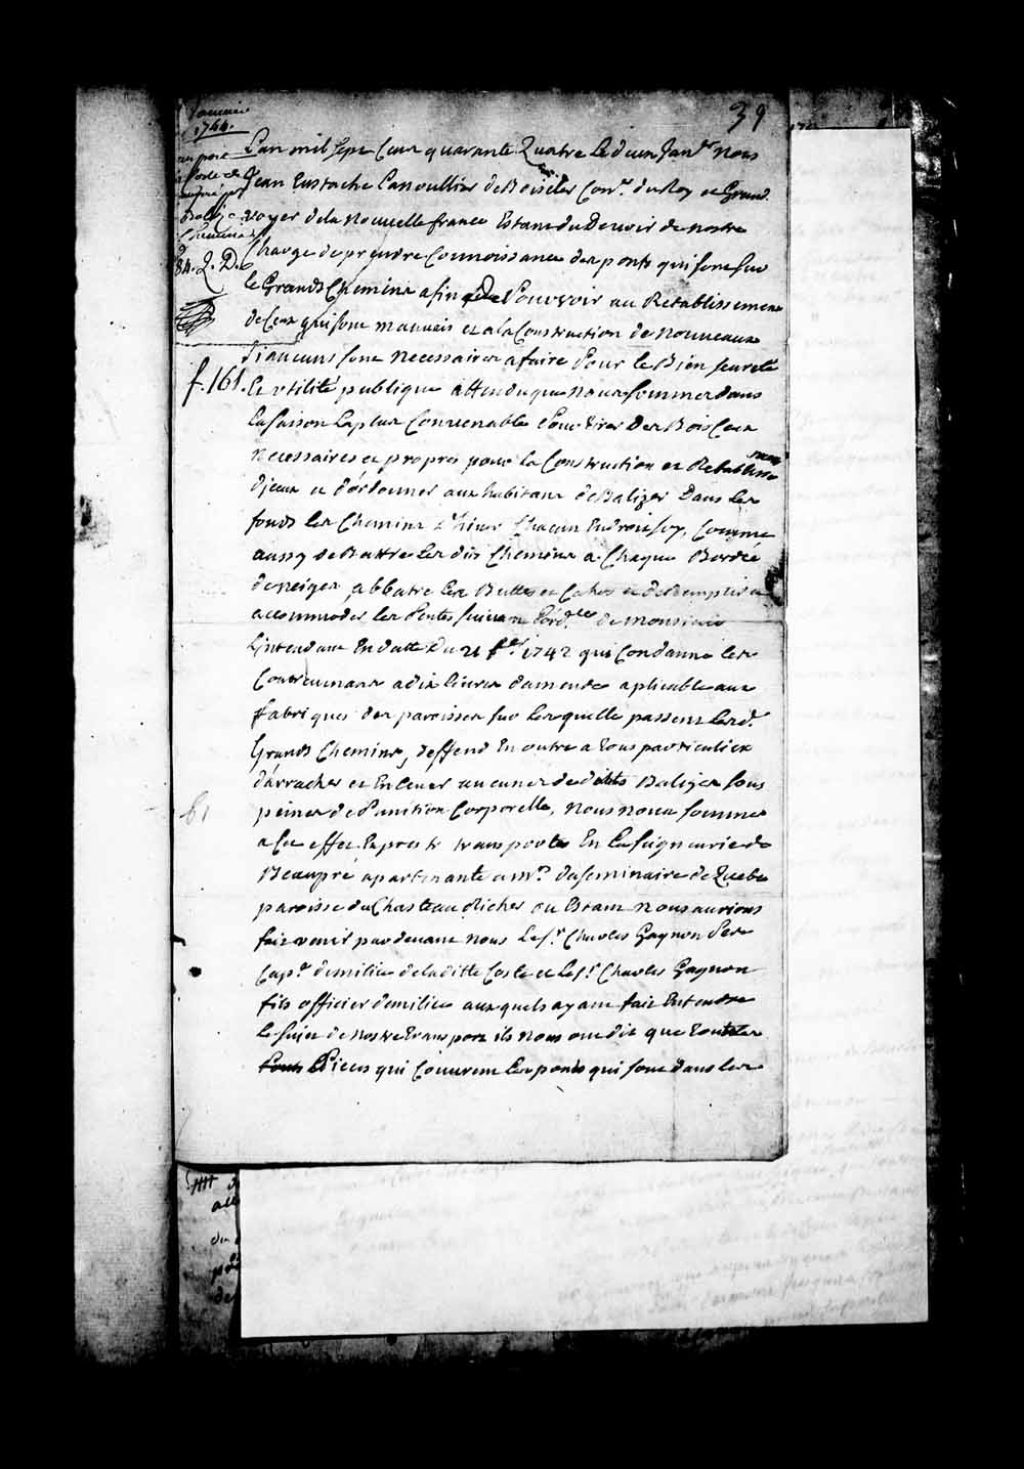 39
Janvier
1744.
L'an mil sept Cens quarante Quatre le deux Janv.er Nous
Jean Eustache Lanoullier de Boisclerc Con.er du Roy et Grand
voyer de la Nouvelle france Estant du Devoir de nostre
Charge de prendre Connoissance des ponts qui sont sur
le Grands Chemins afin de Pourvoir au Retablissement
de Ceux qui sont mauvais et a la Construction de Nouveaux
si aucuns sont necessaires a faire Pour le Bien seureté
Et utilité publique attendu que Nous sommes dans
la saison la plus Convenable Pour tirer Des Bois Ceux
Necessaires et propres pour la Construction et Retablisse
ment
d'jceux et d'ordonner aux habitans de Balizer Dans les
fonds les Chemins d'hiver Chacun Endroit soy, Comme
aussy de Battre Les dits Chemins a Chaque Bordée
de neiges, abbatre les Buttes et Cahos et de Remplir et
accommoder les Pentes suivant l'ord.ce de Monsieur
L'intendant En datte Du 21 f.er 1742 qui Condanne les
Contrevenans a dix livres d'amende aplicable aux
fabriques des paroisses sur lesquelle passent les d.
Grands Chemins, deffend En outre a tous particuliers
d'arracher et Enlever aucunes des dittes Balizes sous
peines de Punition Corporelle, Nous nous sommes
a Cet effet Exprès transportés En la seigneurie de
Beaupré apartenante a M.rs du seminaire de Quebec
paroisse du Chasteau Richer ou Estant Nous aurions
fait venir pardevant nous Le S.r Charles Gagnon Pere
Cap.ne de milice de la ditte Coste et Le S.r Charles Gagnon
fils officier de milice auxquels ayant fait Entendre
le sujet de Nostre transport ils Nous ont dit que toutes les
Pieces qui Couvrent Les ponts qui sont dans les
84. Q. D.
f. 161.
61